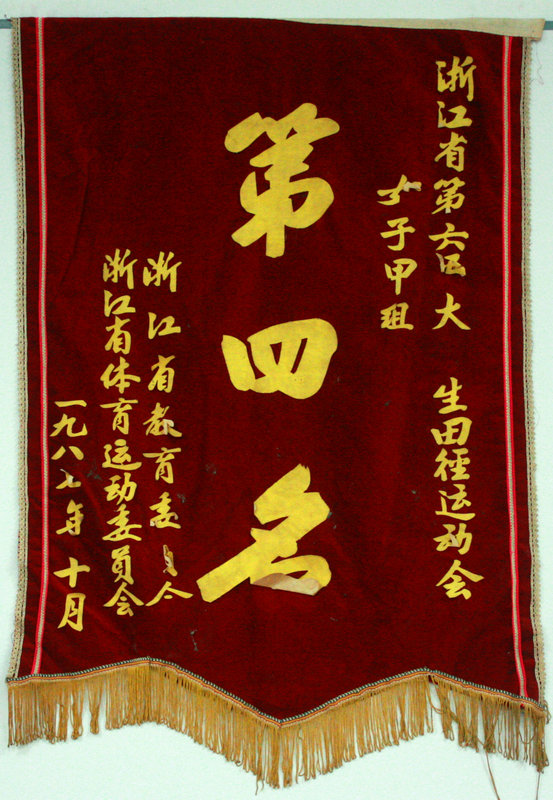 浙江省第六届大 生田径运动会
女子甲组
第四名
浙江省教育委员会
浙江省体育运动委员会
一九八七年十月